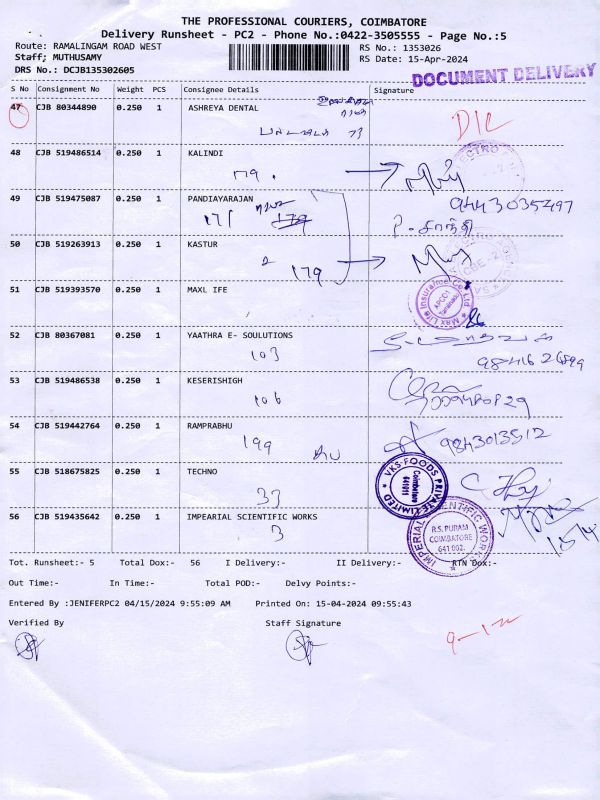 THE PROFESSIONAL COURIERS, COIMBATORE
Delivery Runsheet - PC2 - Phone No.:0422-3505555 - Page No.:5
Route: RAMALINGAM ROAD WEST
RS No.: 1353026
Staff; MUTHUSAMY
RS Date: 15-Apr-2024
DRS No.: DCJB135302605
DOCUMENT DELIVERY
S No Consignment No Weight PCS Consignee Details Signature
47 CJB 80344890 0.250 1 ASHREYA DENTAL
73
48 CJB 519486514 0.250 1 KALINDI
179.
49 CJB 519475087 0.250 1 PANDIAYARAJAN
9443035497
171 179
50 CJB 519263913 0.250 1 KASTUR
179
51 CJB 519393570 0.250 1 MAXL IFE
Max Life Insurance Co. Ltd
52 CJB 80367081 0.250 1 YAATHRA E- SOULUTIONS
103
53 CJB 519486538 0.250 1 KESERISHIGH
106
54 CJB 519442764 0.250 1 RAMPRABHU
199
9843013512
55 CJB 518675825 0.250 1 TECHNO
33
VKS FOODS PRIVATE LIMITED
Coimbatore
641011
56 CJB 519435642 0.250 1 IMPEARIAL SCIENTIFIC WORKS
3
IMPERIAL SCIENTIFIC WORKS
R.S. PURAM
COIMBATORE
641 002.
Tot. Runsheet:- 5 Total Dox:- 56 I Delivery:- II Delivery:- RTN Dox:-
Out Time:- In Time:- Total POD:- Delvy Points:-
Entered By :JENIFERPC2 04/15/2024 9:55:09 AM Printed On: 15-04-2024 09:55:43
Verified By Staff Signature